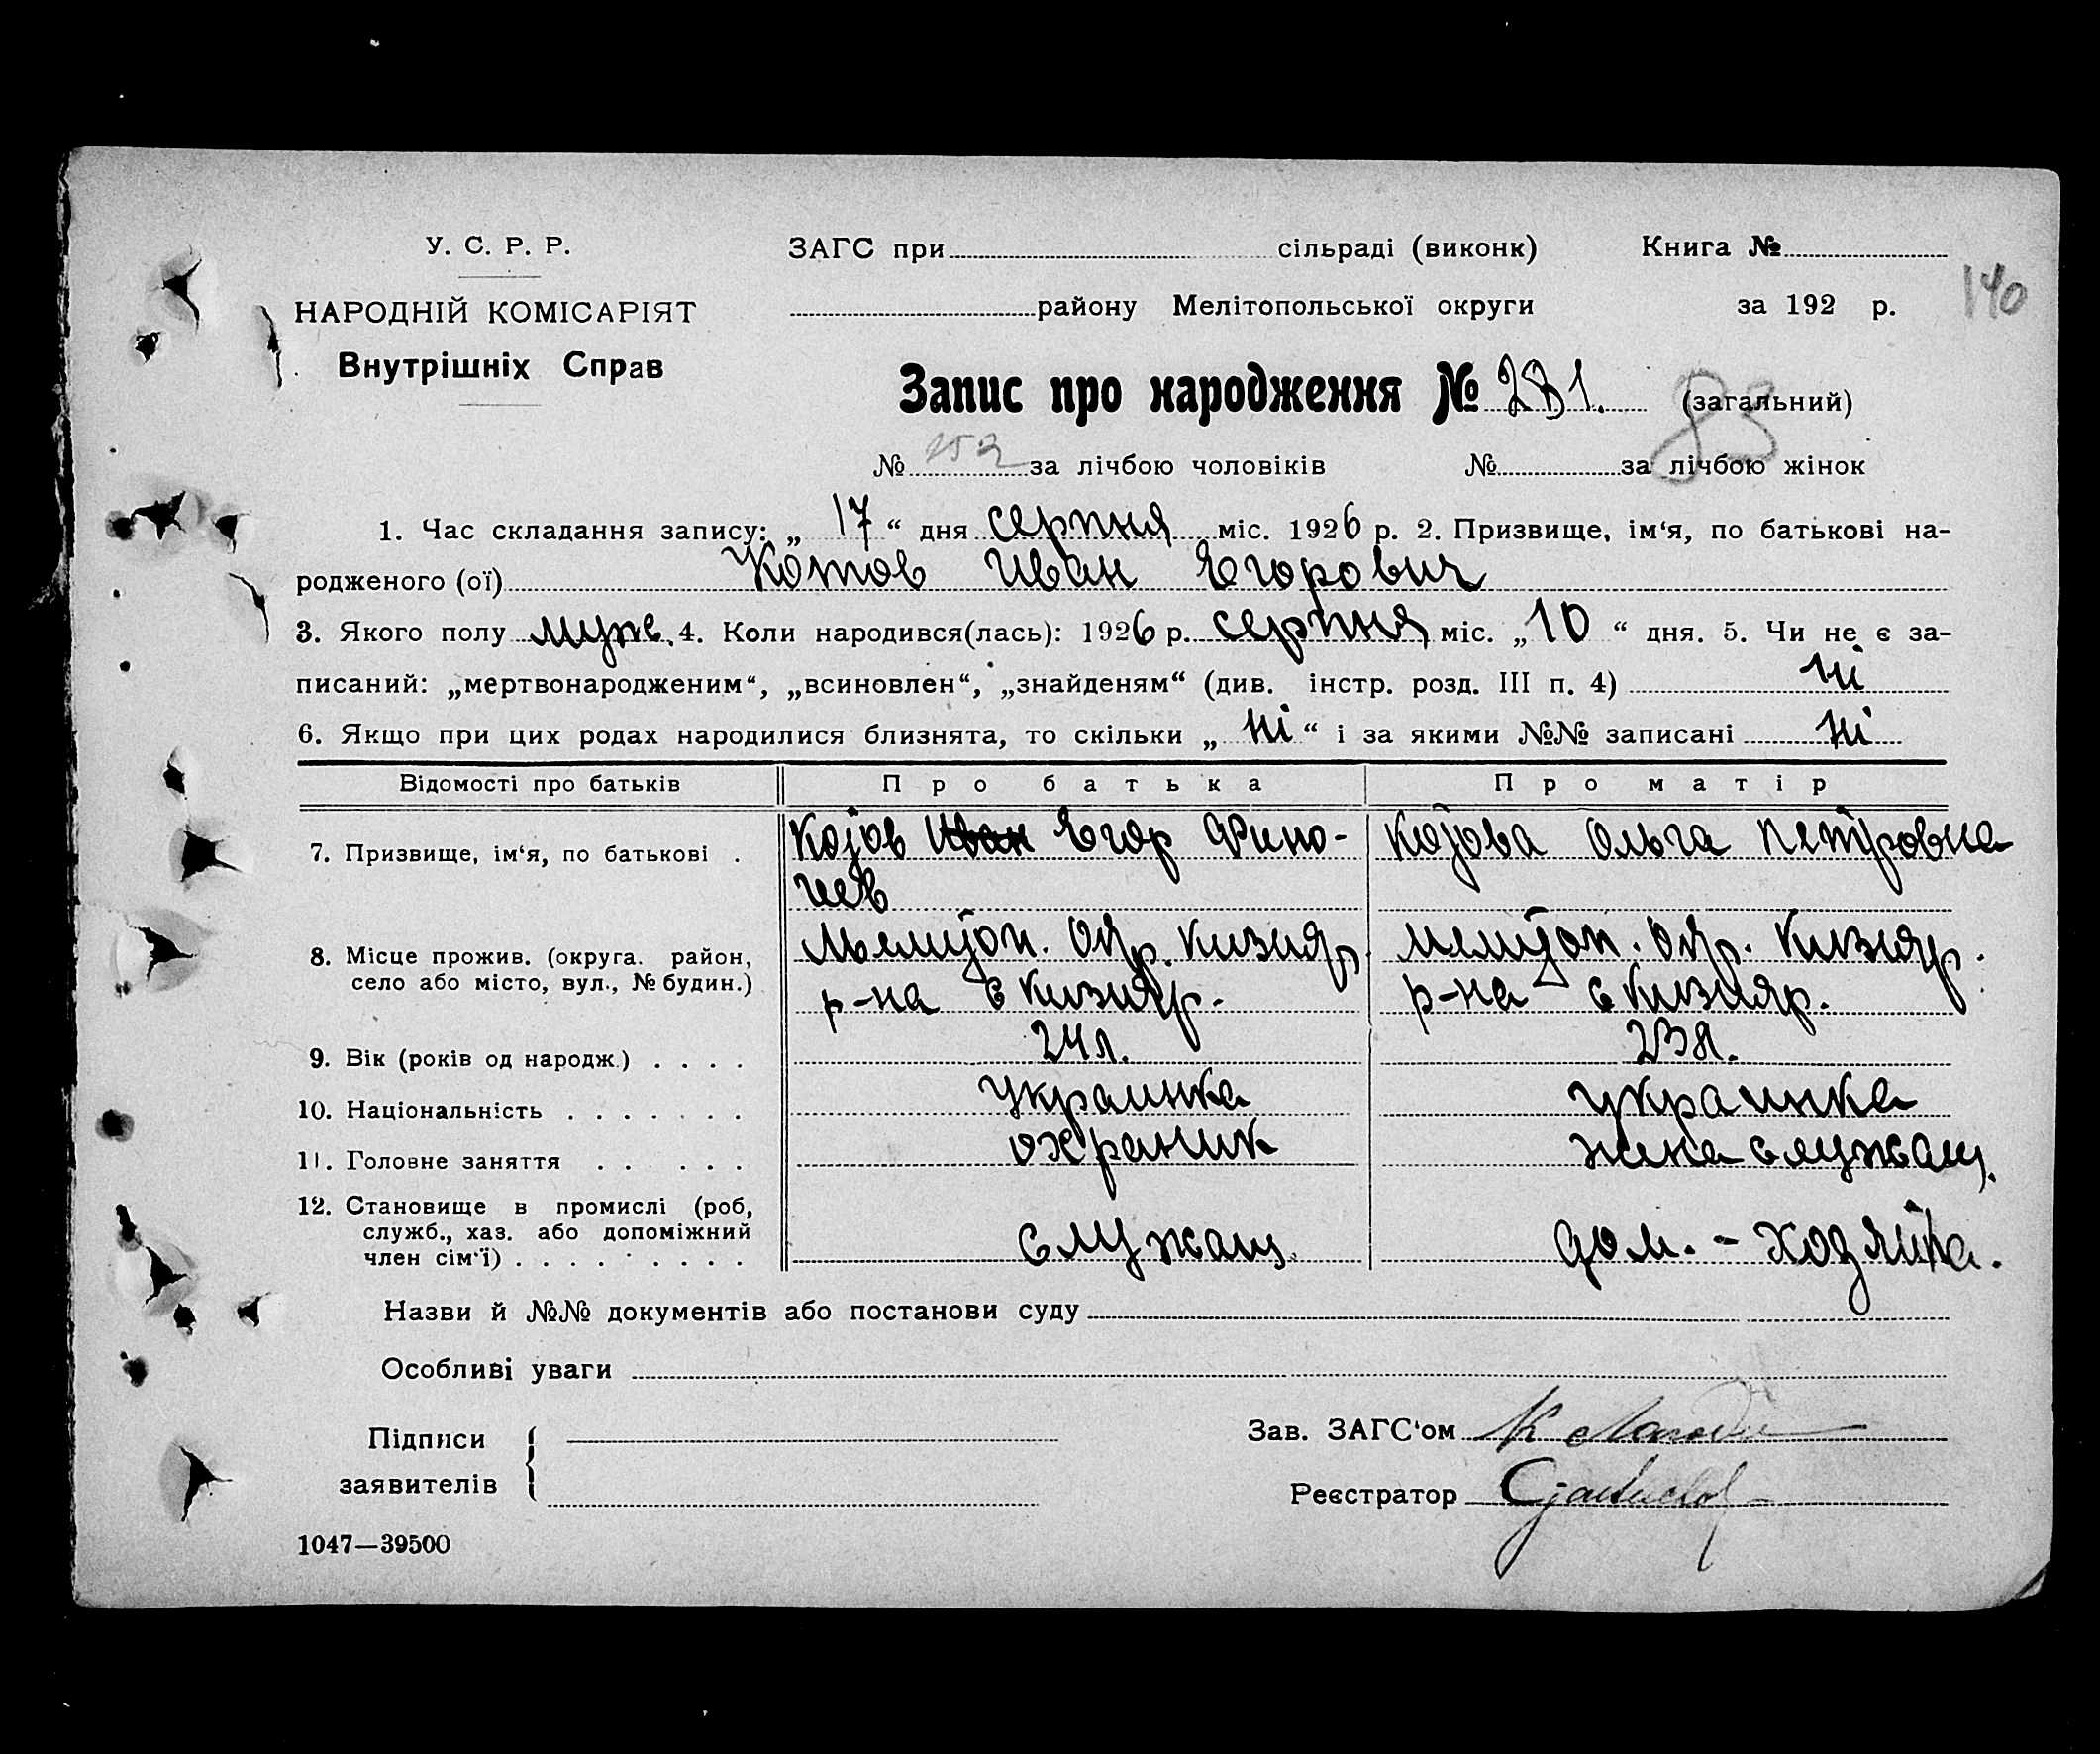 У. С. Р. Р.
НАРОДНІЙ КОМІСАРІЯТ
Внутрішніх Справ
ЗАГС при сільраді (виконк)
району Мелітопольської округи
Книга №
за 192 р.
140
Запис про народження № 231. (загальний)
83
№ 152 за лічбою чоловіків № за лічбою жінок
1. Час складання запису: „ 17 “ дня серпня міс. 1926 р. 2. Призвище, ім‘я, по батькові на-
родженого (ої) Котов Иван Егорович
3. Якого полу муже. 4. Коли народився(лась): 1926 р. серпня міс. „ 10 “ дня. 5. Чи не є за-
писаний: „мертвонародженим“, „всиновлен“, „знайденям“ (див. інстр. розд. III п. 4) ні
6. Якщо при цих родах народилися близнята, то скільки „ ні “ і за якими №№ записані ні
Відомості про батьків Про батька Про матір
7. Призвище, ім‘я, по батькові . Котов Иван Егор Фино- Котова Ольга Петровна
8. Місце прожив. (округа. район, Мелитоп. Окр. Кизияр Мелитоп. Окр. Кизияр.
село або місто, вул., № будин.) р-на с Кизияр. р-на с Кизияр.
9. Вік (років од народж.) . . . . 24 л. 23 л.
10. Національність . . . . . . . украинка украинка
11. Головне заняття . . . . . . охраник жена служащ.
12. Становище в промислі (роб,
служб., хаз. або допоміжний служащ. дом. - хозяйка.
член сім‘ї) . . . . . . . .
Назви й №№ документів або постанови суду
Особливі уваги
Підписи
заявителів
Зав. ЗАГС‘ом
Реєстратор
1047—39500